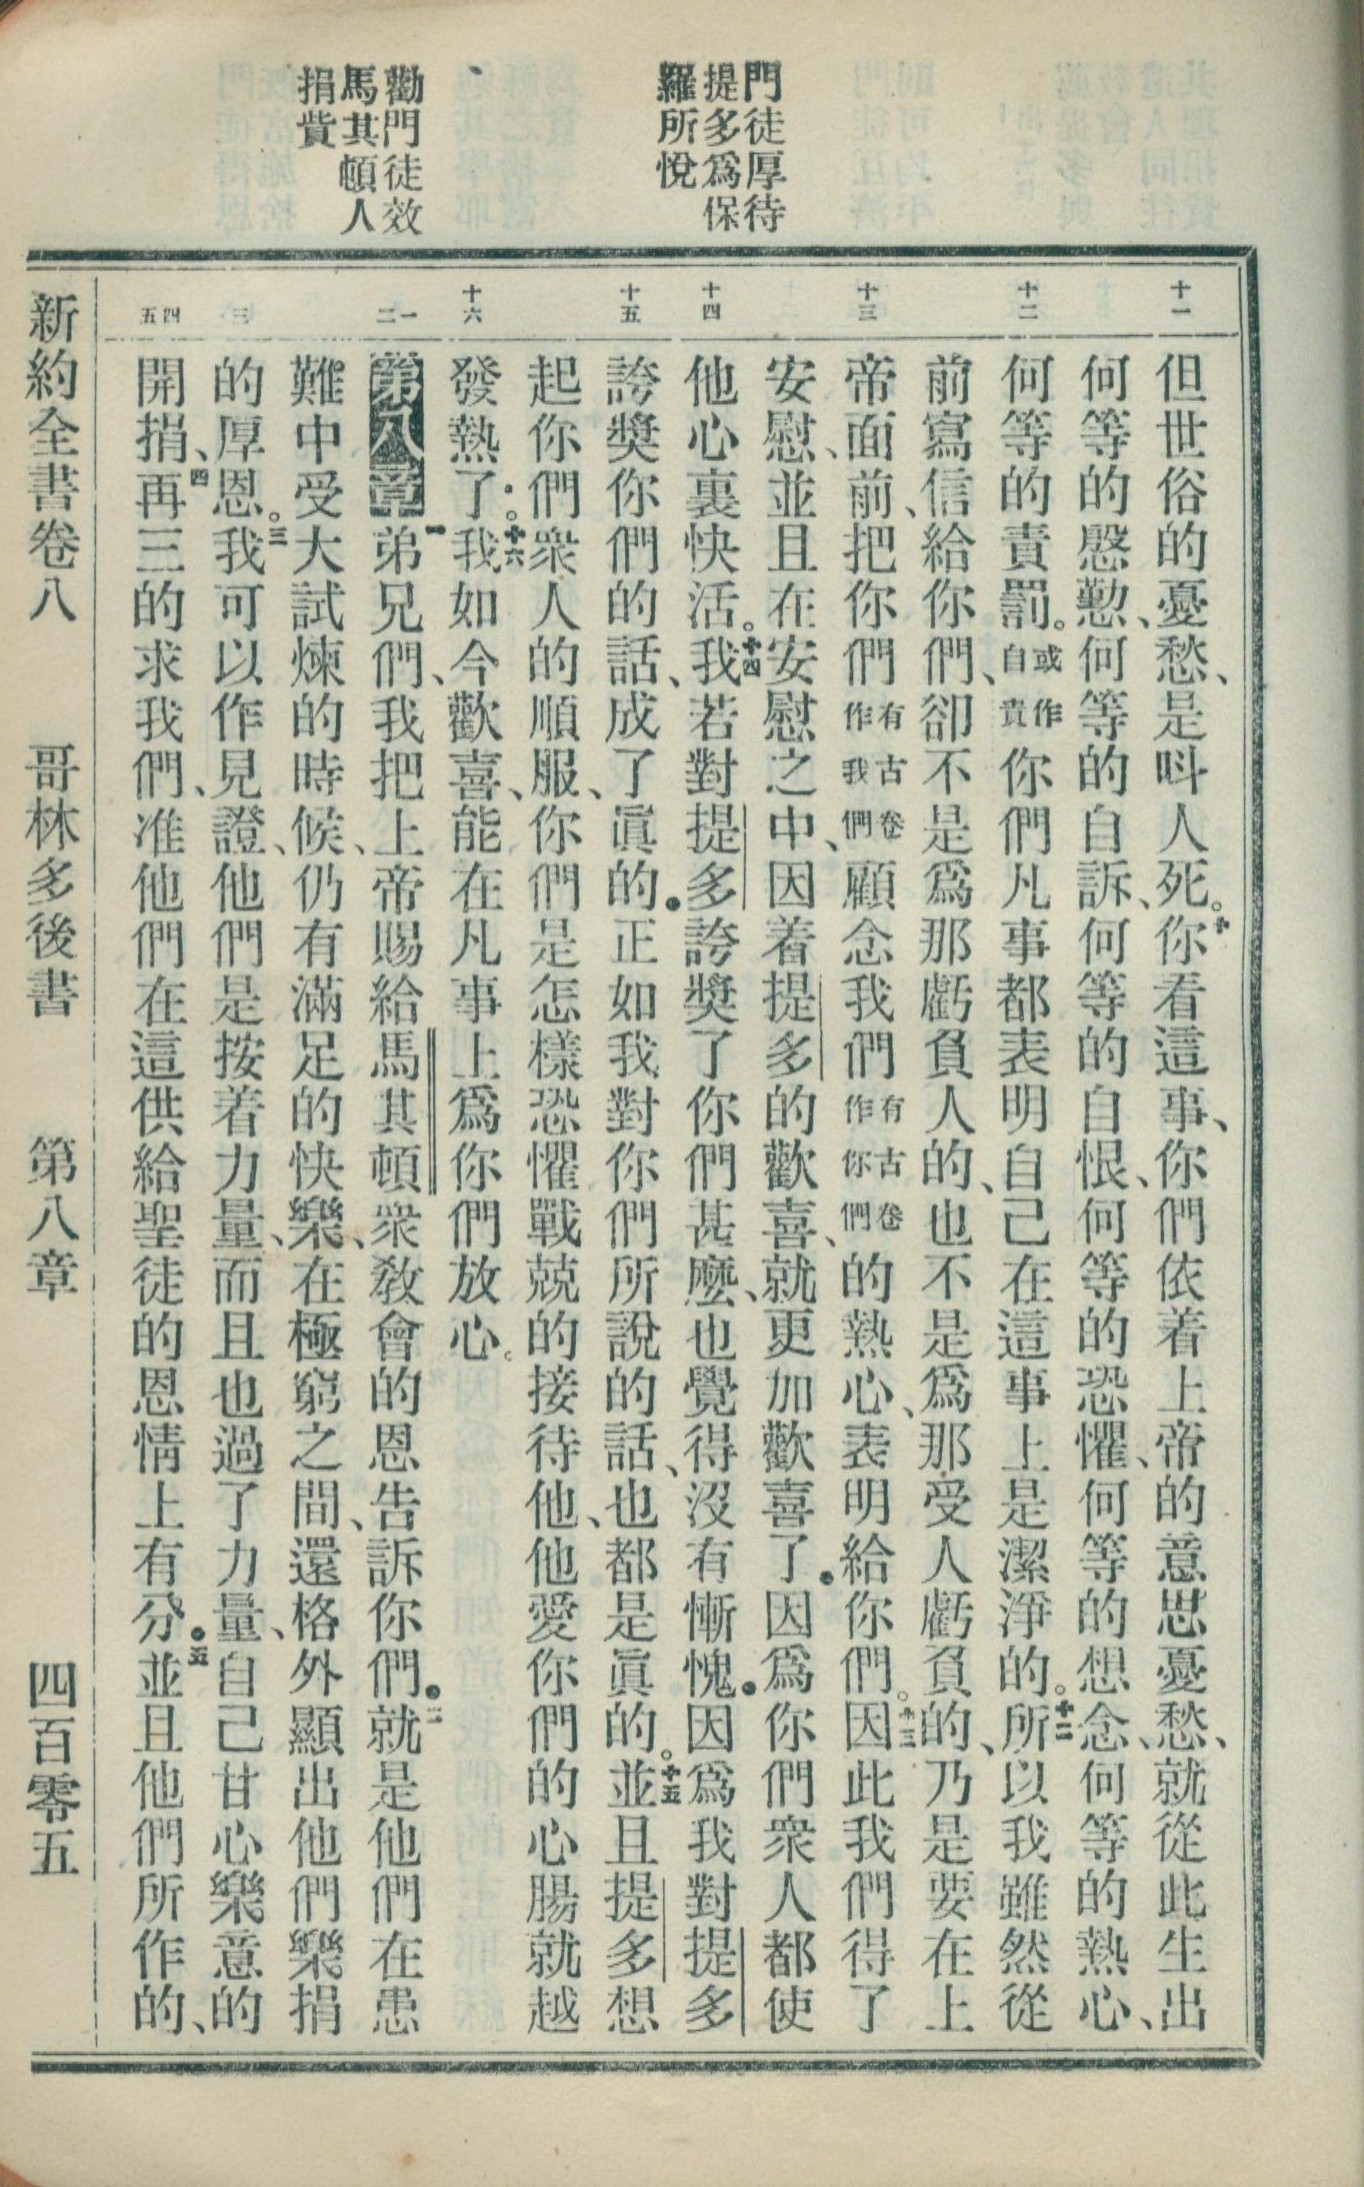 門徒厚待
提多爲保
羅所悅
勸門徒效
馬其頓人
捐貲
十一
十二
十三
十四
十五
十六
一二
三
四五
但世俗的憂愁、是呌人死。十一你看這事、你們依着上帝的意思憂愁、就從此生出
何等的慇懃、何等的自訴、何等的自恨、何等的恐懼、何等的想念、何等的熱心、
何等的責罰。或作自責你們凡事都表明自己在這事上是潔淨的。十二所以我雖然從
前寫信給你們、卻不是爲那虧負人的、也不是爲那受人虧負的、乃是要在上
帝面前、把你們有古卷作我們顧念我們有古卷作你們的熱心、表明給你們。十三因此我們得了
安慰、並且在安慰之中、因着提多的歡喜、就更加歡喜了．因爲你們衆人都使
他心裏快活。十四我若對提多誇獎了你們甚麼、也覺得沒有慚愧．因爲我對提多
誇獎你們的話、成了眞的．正如我對你們所說的話、也都是眞的。十五並且提多想
起你們衆人的順服、你們是怎樣恐懼戰兢的接待他、他愛你們的心腸就越
發熱了。十六我如今歡喜、能在凡事上爲你們放心。
第八章一弟兄們、我把上帝賜給馬其頓衆敎會的恩告訴你們．二就是他們在患
難中受大試煉的時候、仍有滿足的快樂、在極窮之間、還格外顯出他們樂捐
的厚恩。三我可以作見證、他們是按着力量、而且也過了力量、自己甘心樂意的
開捐、四再三的求我們、准他們在這供給聖徒的恩情上有分．五並且他們所作的、
新約全書卷八　哥林多後書　第八章　四百零五